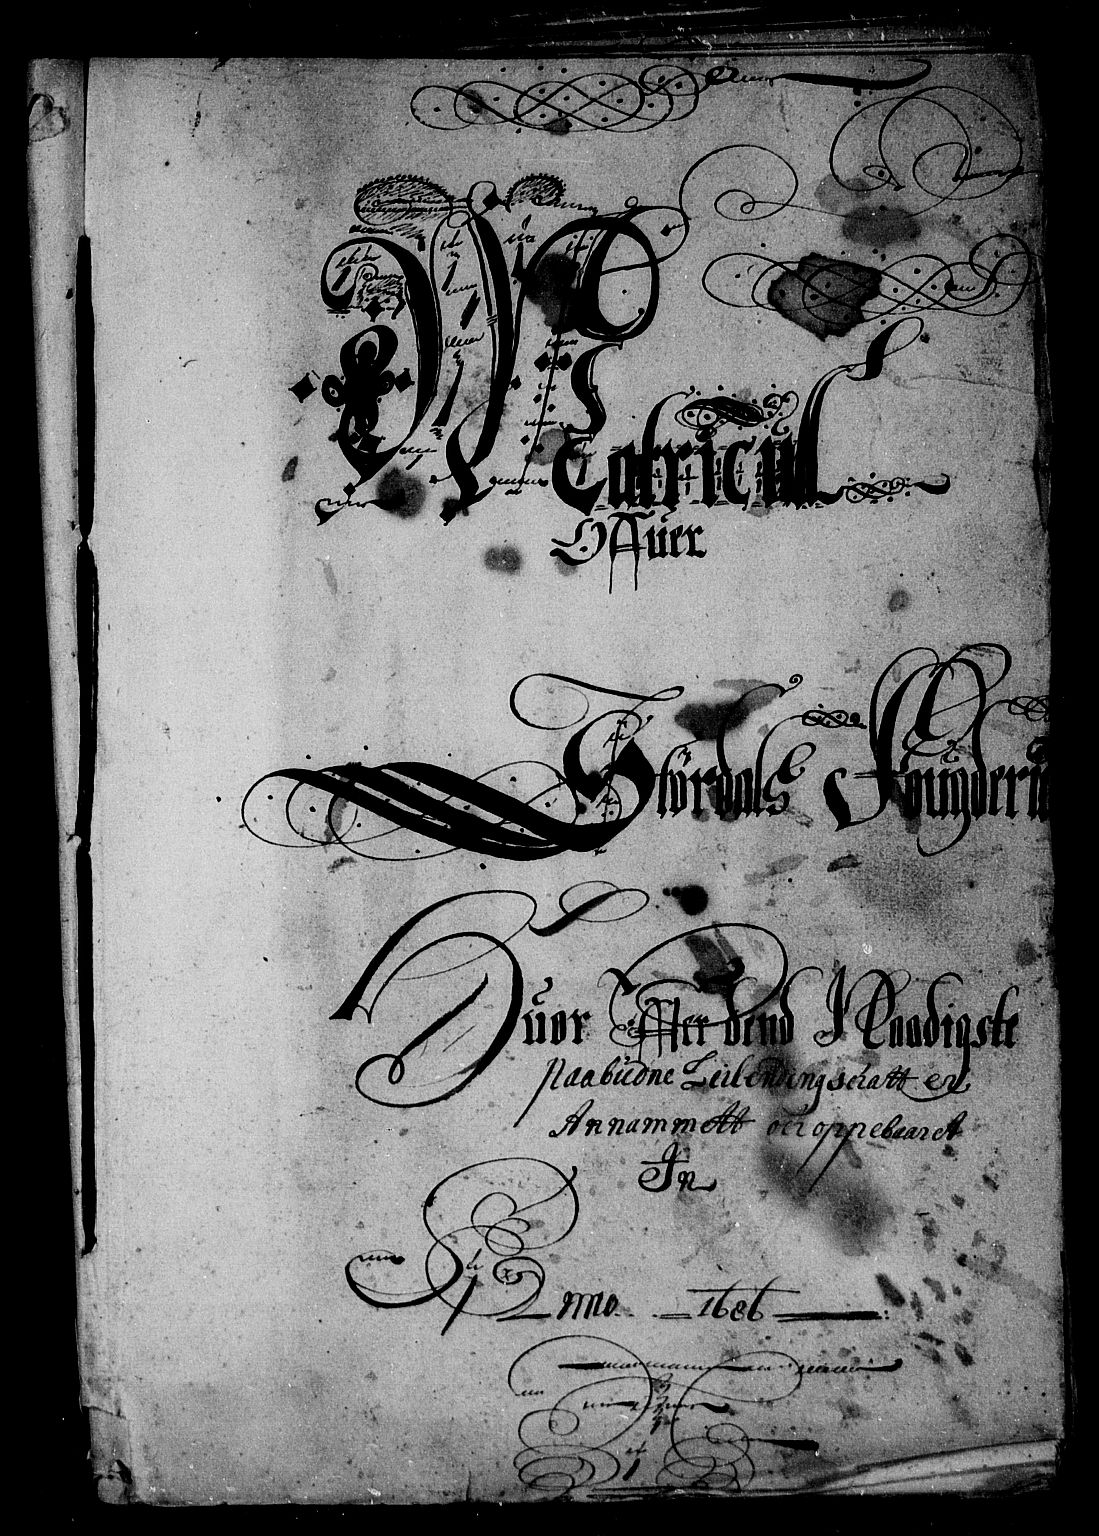 Matricul
Offuer
Stördals Fougderie
Huor Effter dend I Naadigste
Paabudne Leilendingschatt er
Annammett och oppebaaret
In
Anno 1686